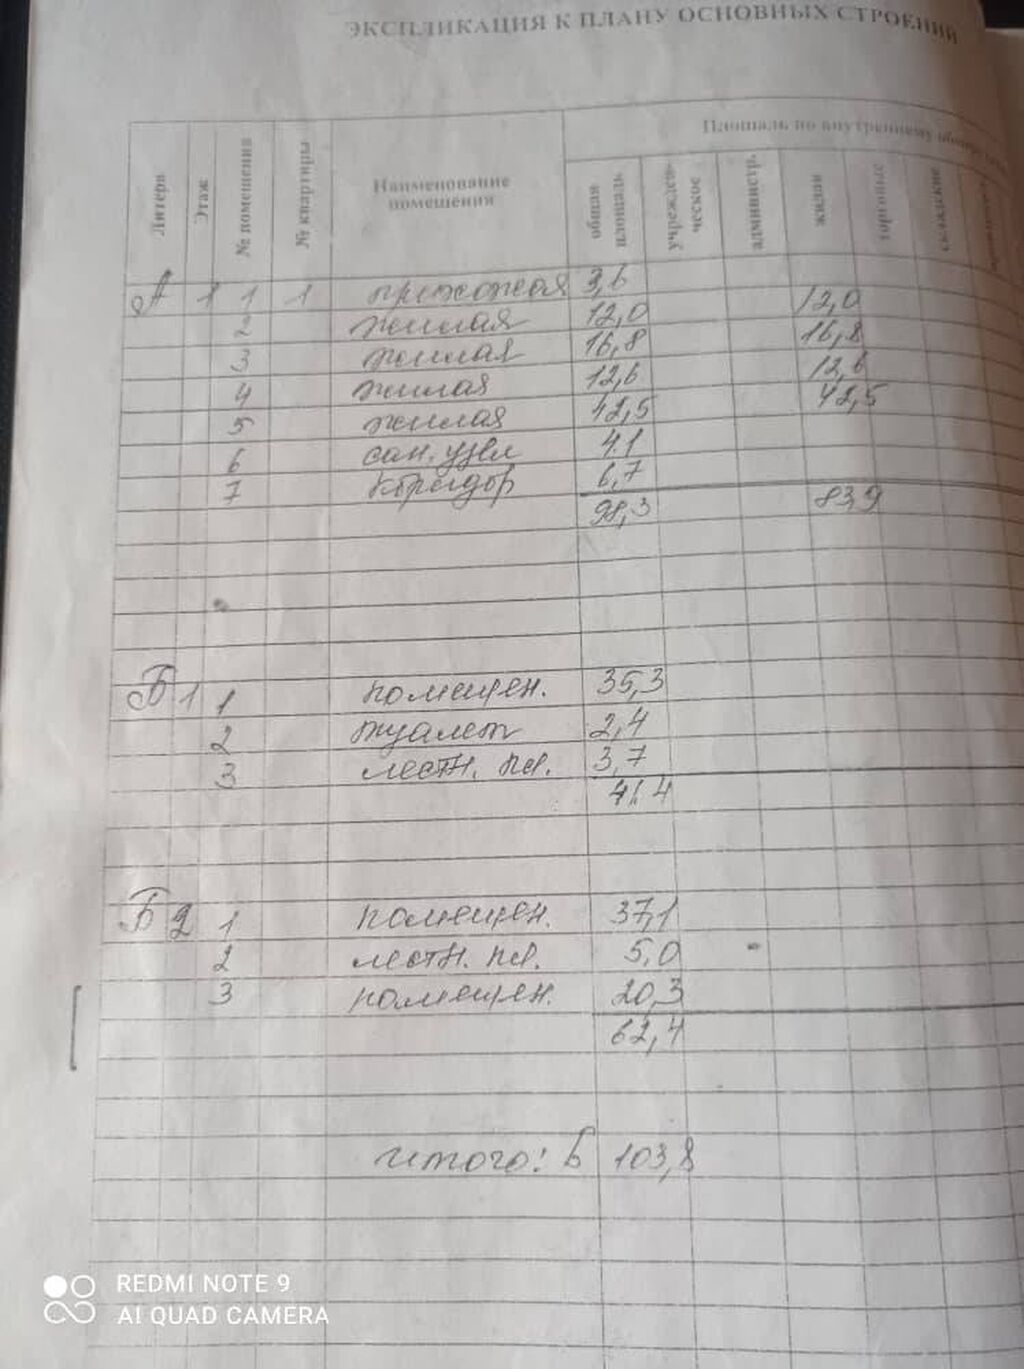 ЭКСПЛИКАЦИЯ К ПЛАНУ ОСНОВНЫХ СТРОЕНИЙ
Площадь по внутреннему
Литера Этаж № помещения № квартиры Наименование помещения общая площадь учрежден-ческое администр. жилая торговые складские
А 1 1 1 прихожая 3,6
2 жилая 12,0 12,0
3 жилая 16,8 16,8
4 жилая 12,6 12,6
5 жилая 42,5 42,5
6 сан. узел 4.1
7 коридор 6,7
98,3 83,9
Б 1 1 помещен. 35,3
2 туалет 2,4
3 лестн. кл. 3,7
41.4
Б 2 1 помещен. 37,1
2 лестн. кл. 5,0
3 помещен. 20,3
62,4
итого: Б 103,8
REDMI NOTE 9
AI QUAD CAMERA